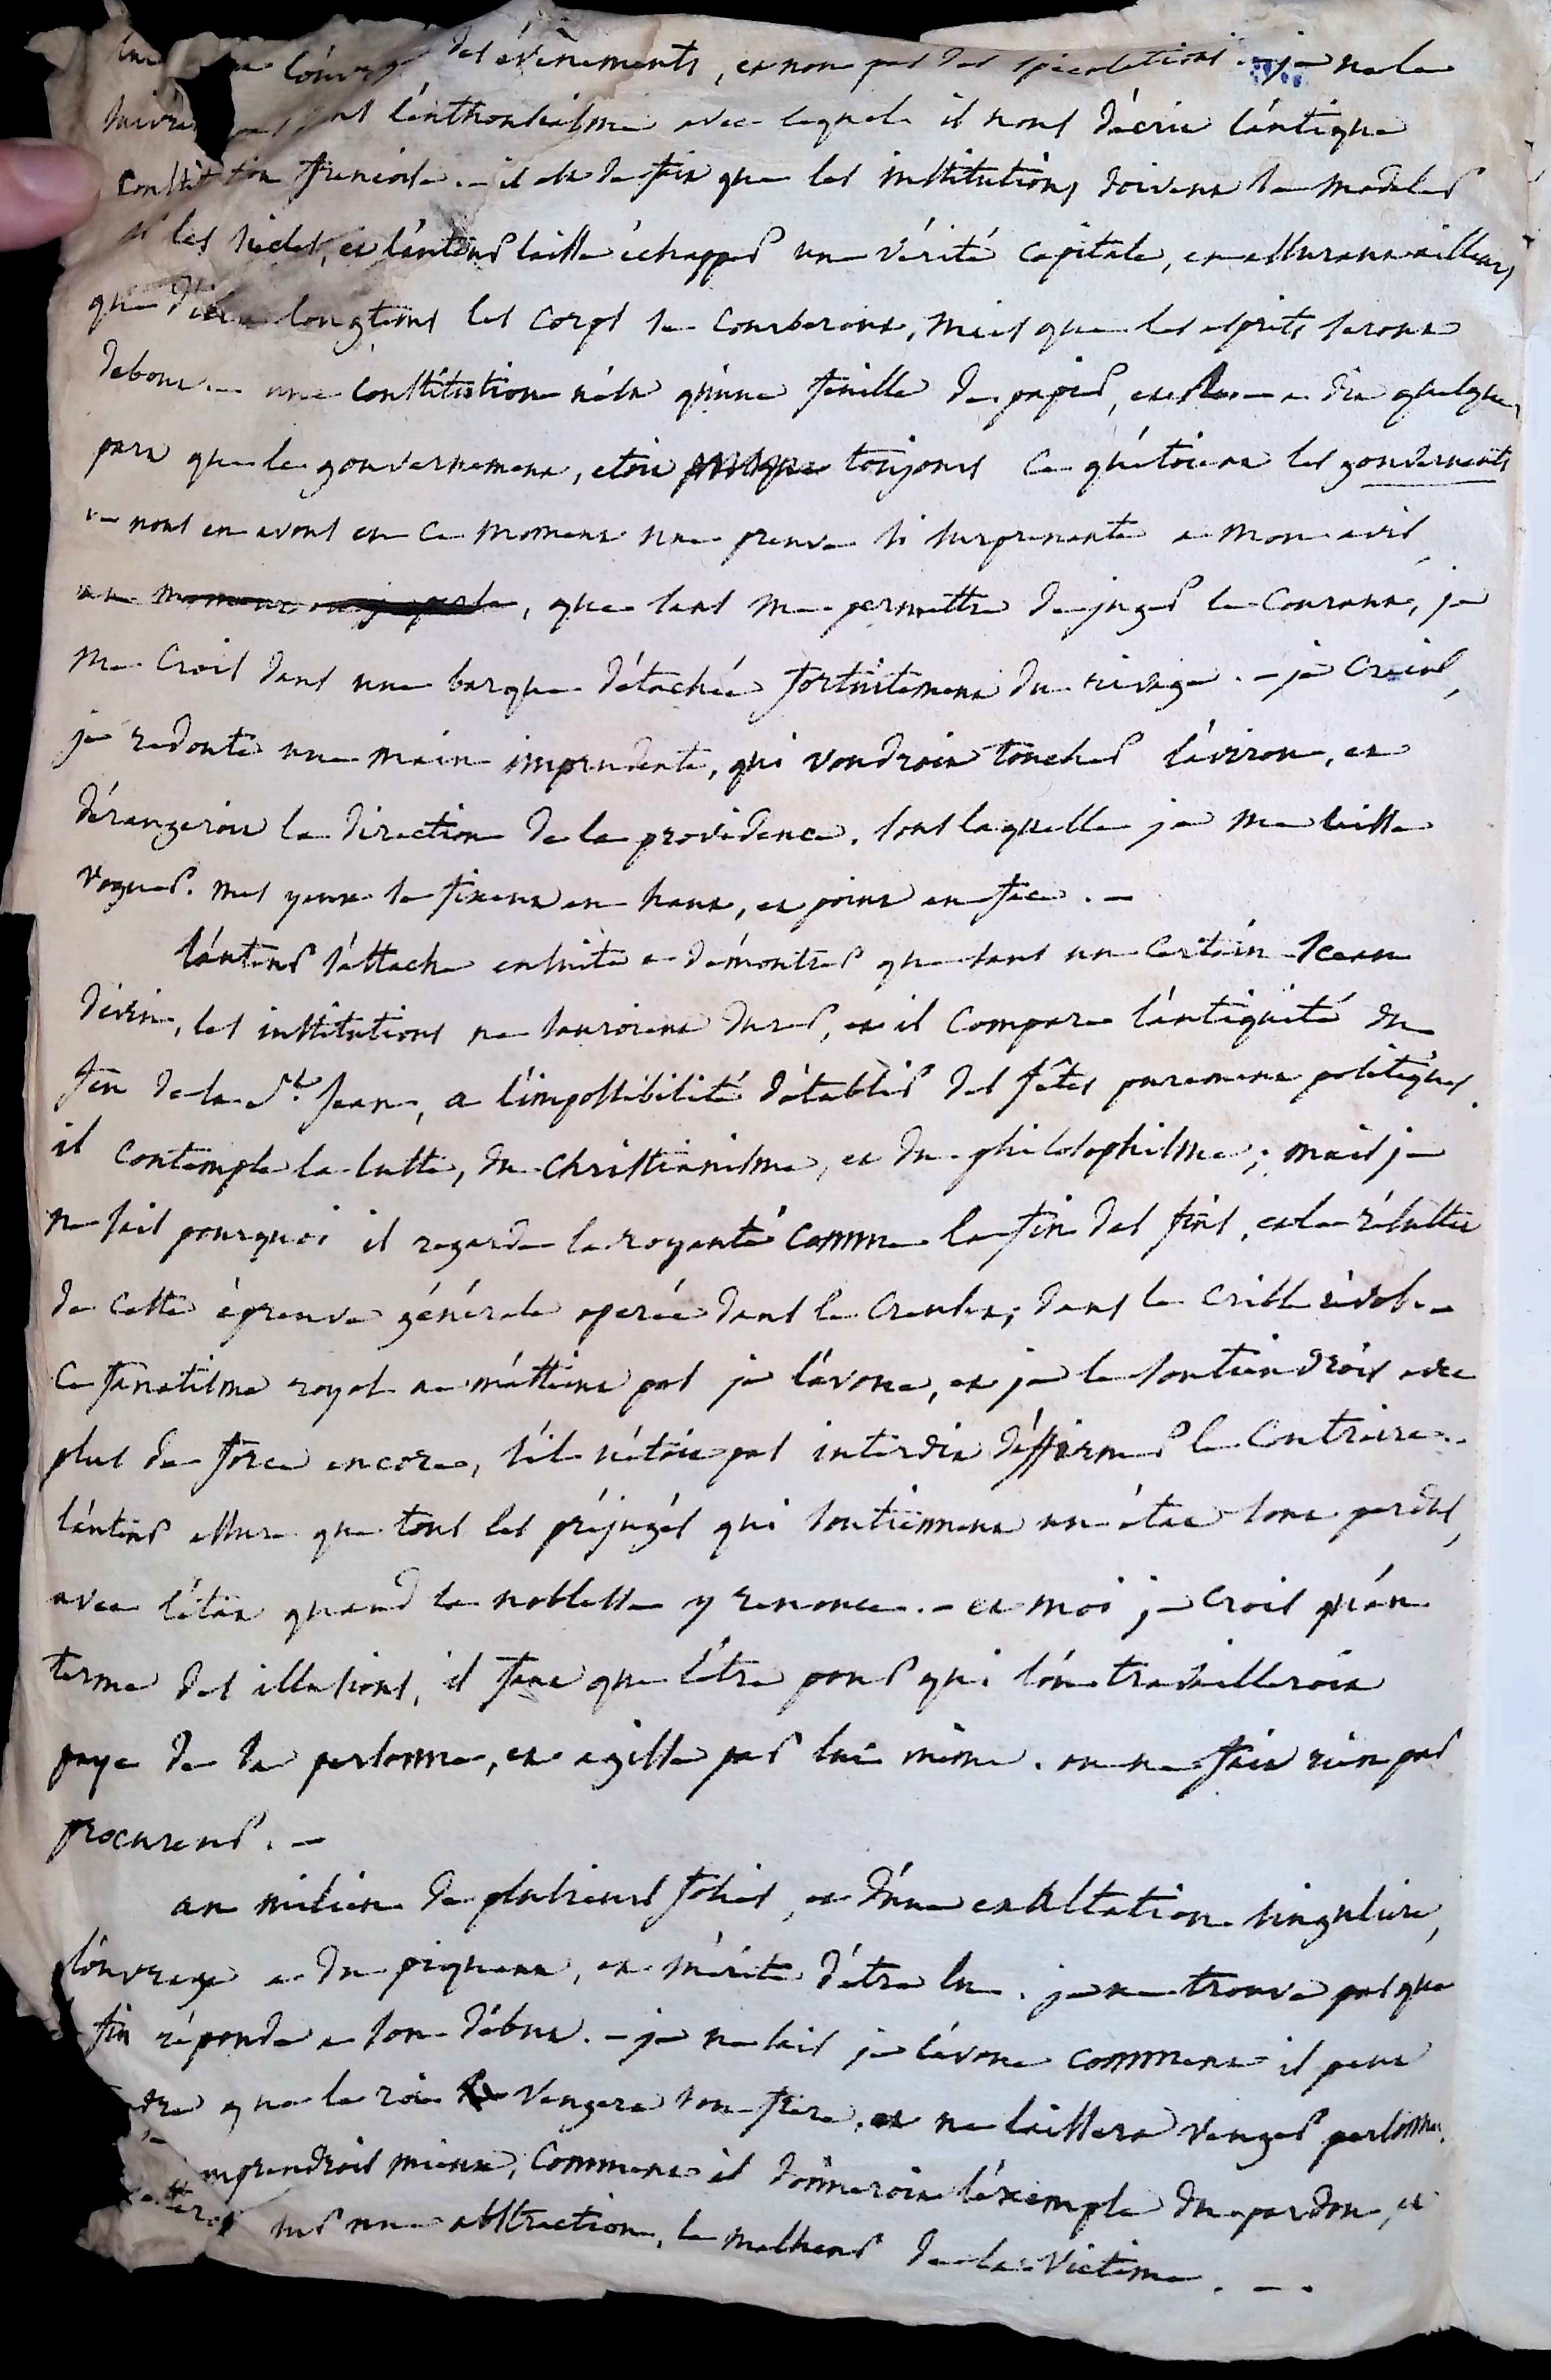 des évènements, et non pas des spéculations. - je ne le
suivrai pas dans l'enthousiasme avec lequel il nous décrie l'antique
constitution françoise. - il est de fait que les institutions doivent se modeler
les siècles, et l'auteur laisse échapper une vérité capitale, en assurant ailleurs
que longtems les corps se courberont, mais que les esprits seront
debout. - une constitution n'est qu'une feuille de papier, et a dit quelque
part que le gouvernement, étoit toujours ce qu'étoient les gouvernants
- nous en avons en ce moment une preuve si surprenante a mon avis
, que sans me permettre de juger le courant, je
me crois dans une barque détachée fortuitement du rivage. - je crains,
je redoute une main imprudente, qui voudroit toucher l'aviron, et
dérangeroit la direction de la providence. sous laquelle je me laisse
voguer. mes yeux se fixent en haut, et point en face. -
l'auteur s'attache ensuite a démontrer que sans un certain sceau
divin, les institutions ne sauroient durer, et il compare l'antiquité du
feu de la St. Jean, a l'impossibilité d'établir des fêtes purement politiques.
il contemple la lutte, du christianisme, et du philosophisme; mais je
ne sais pourquoi il regarde la royauté comme la fin des fins, et le résultat
de cette épreuve générale operée dans le creuset, dans le crible révol. -
ce fanatisme royal ne m'attient pas je l'avoue, et je le soutiendrois avec
plus de force encore, s'il n'étoit pas interdit d'affirmer le contraire. -
l'auteur assure que tous les préjugés qui soutiennent un état sont perdus,
avec l'état quand la noblesse y renonce. - et moi je crois qu'au
terme des illusions, il faut que l'être pour qui l'on travailleroit
paye de sa personne, et agisse par lui même. on ne fait rien par
procureur. -
au milieu de plusieurs folies, et d'une exaltation singulière,
l'ouvrage a du piquant, et mérite d'être lu. je ne trouve pas que
fin réponde a son début. - je ne sais je l'avoue comment il peut
que le roi vengera son frère, et ne laissera venger personne.
comprendrois mieux, comment il donneroit l'exemple du pardon, et
sur une abstraction, le malheur de la victime. - .